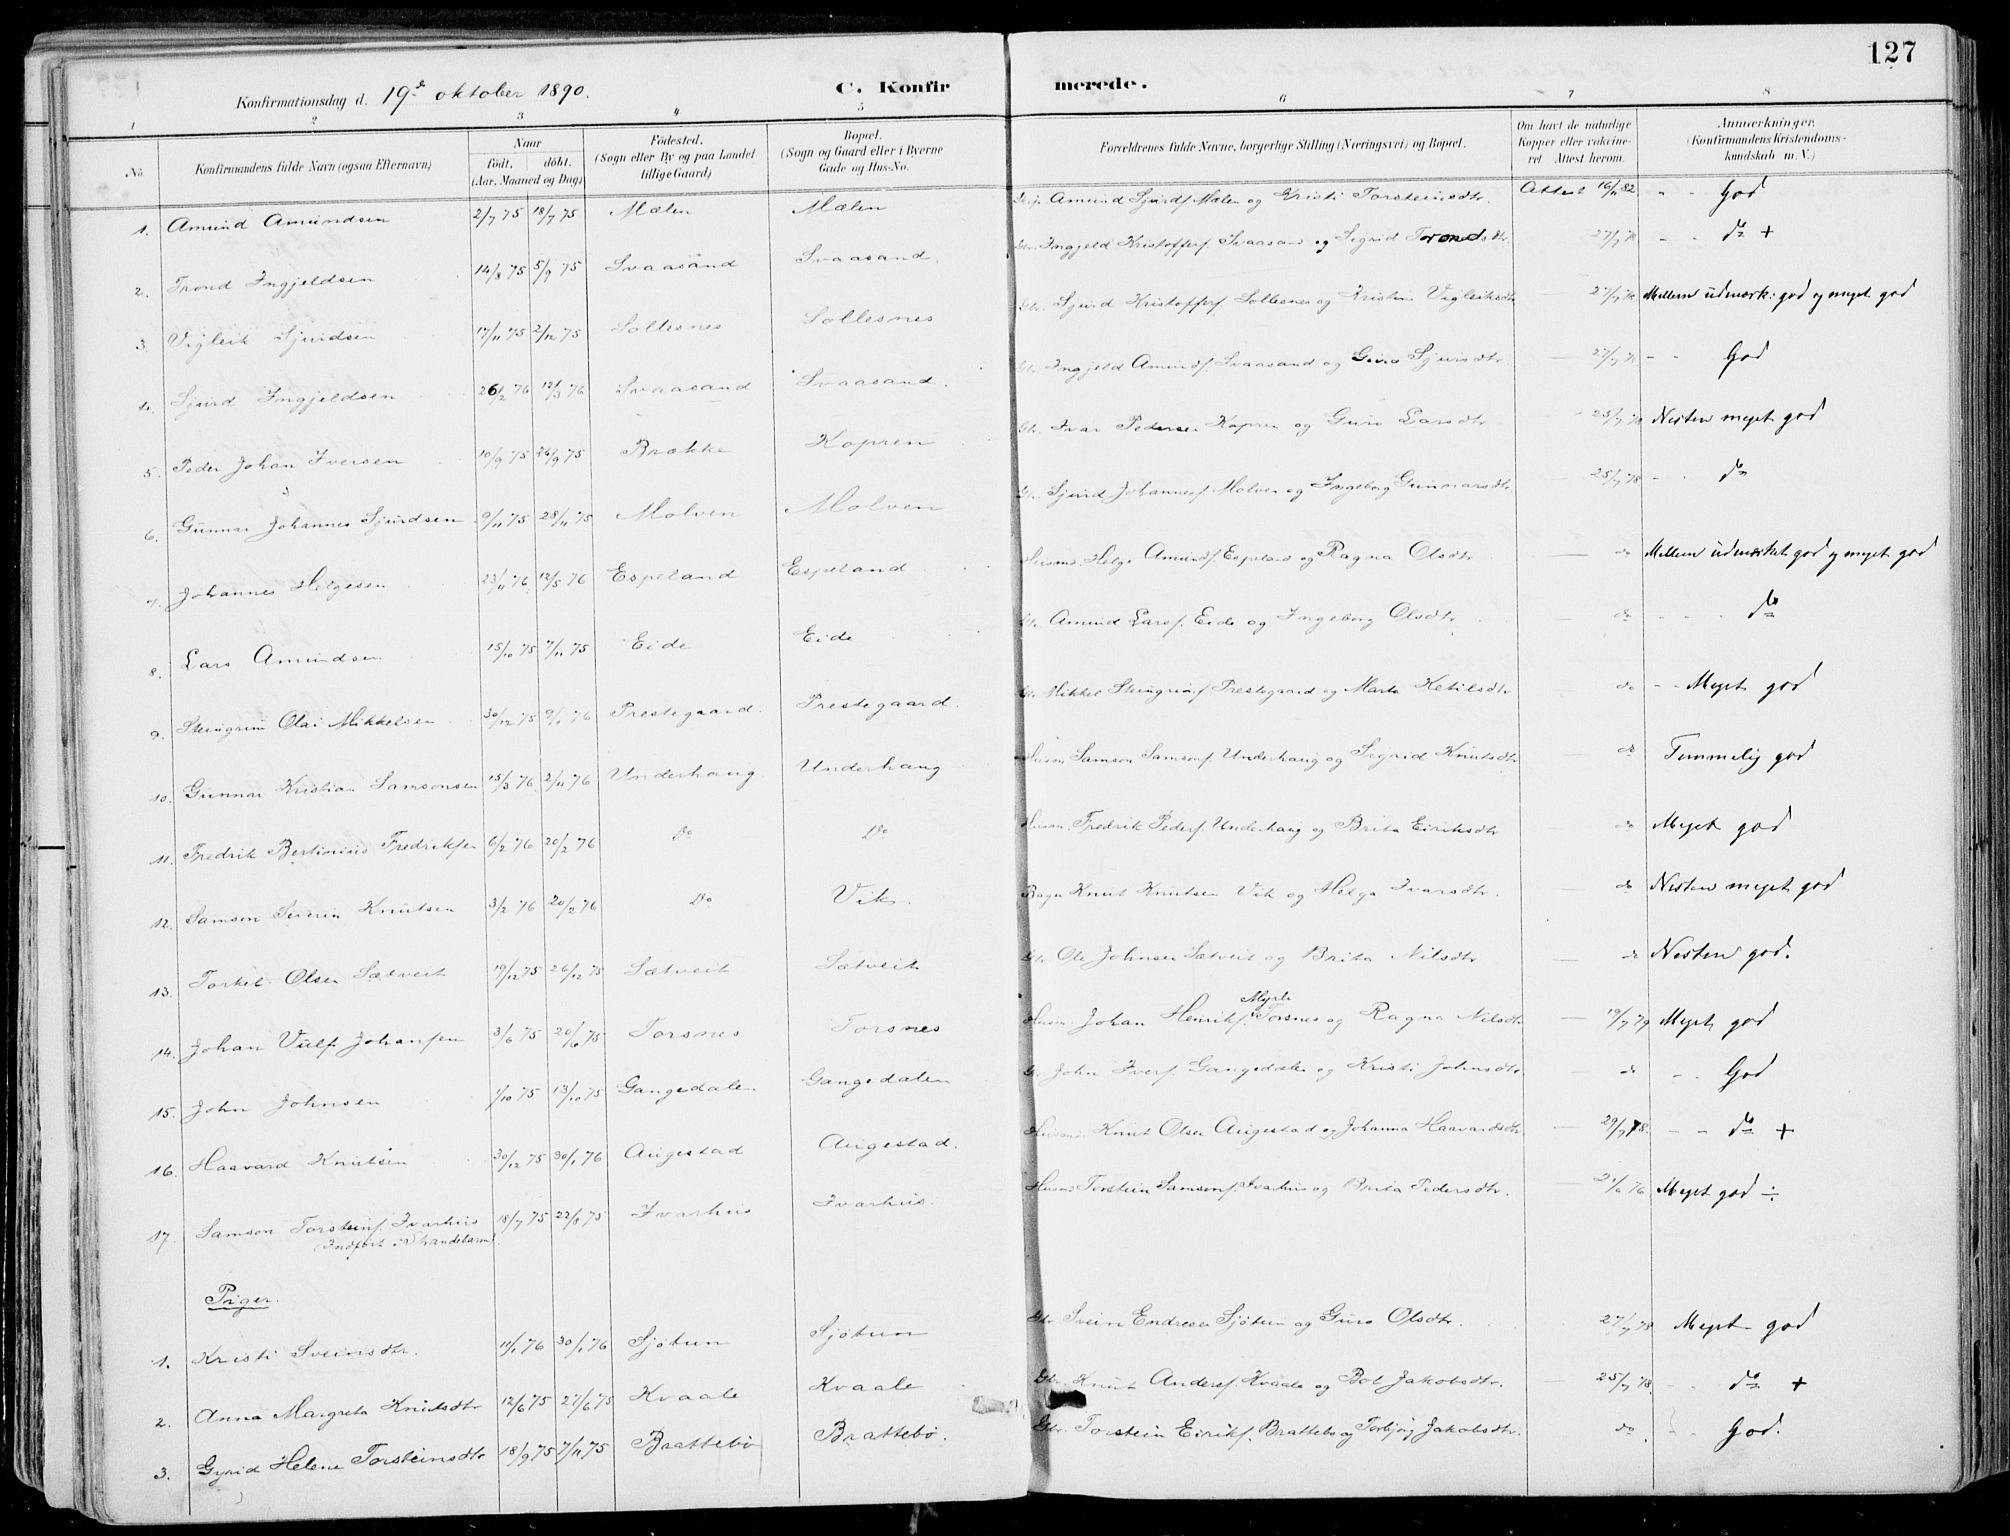 127
Konfirmationsdag d. 19de oktober 1890. C. Konfirmerede.
1 2 3 4 5 6 7 8
No. Konfirmandens fulde Navn (ogsaa Efternavn) Naar født. døbt. (Aar, Maaned og Dag) Fødested. (Sogn eller By og paa Landet tillige Gaard) Bopæl. (Sogn og Gaard eller i Byerne Gade og Hus-No. Forældrenes fulde Navne, borgerlige Stilling (Næringsvei) og Bopæl. Om havt de naturlige Kopper eller vakcineret Attest herom. Anmærkninger. (Konfirmandens Kristendomskundskab m. V.)
1. Amund Amundsen 2/7 75 18/7 75 Mælen Mælen Amund Sjurds. Mælen og Kristi Torsteinsdtr. Attest 16/11 82 - - God
2. Trond Ingjeldsen 14/8 75 5/9 75 Svaasand Svaasand. Gbr. Ingjeld Kristoffers. Svaasand og Sigrid Trondsdtr. 27/7 78 - - do +
3. Vigleik Sjurdsen 17/11 75 2/12 75 Sollesnes Sollesnes Gbr. Sjurd Kristoffers. Sollesnes og Kristin Vigleiksdtr. — 27/7 78 Mellem udmærk: god og meget god
4. Sjurd Ingjeldsen 26/2 76 12/3 76 Svaasand Svaasand. Gbr. Ingjeld Amunds. Svaasand og Guro Sjursdtr — 27/7 78 - - God
5. Peder Johan Iversen 10/9 75 26/9 75 Brække Kopren Gbr. Ivar Pedersen Kopren og Guro Larsdtr. - 25/7 78 Nesten meget god
6. Gunnar Johannes Sjurdsen 9/11 75 28/11 75 Molven Molven Gbr. Sjurd Johanness. Molven og Ingeborg Gunnarsdtr. — 25/7 78 - - do
7. Johannes Helgesen 23/11 76 12/5 76 Espeland Espeland Husmd. Helge Amunds. Espeland og Ragna Olsdtr — do Mellem udmærket god og meget god
8. Lars Amundsen 15/10 75 7/11 75 Eide Eide Gbr. Amund Larss. Eide og Ingeborg Olsdtr. do - - do
9. Steingrim Olai Mikkelsen 30/12 75 9/1 76 Prestegaard. Prestegaard. Gbr. Mikkel Steingrims. Prestegaard og Marta Ketilsdtr — do - - Meget god
10. Gunnar Kristian Samsonsen 15/3 76 2/4 76 Underhaug Underhaug Husm. Samson Samsons. Underhaug og Sigrid Knutsdtr — do Temmelig god
11. Fredrik Bertinius Fredriksen 6/2 76 20/2 76 Do Do Husm. Fredrik Peders. Underhaug og Brita Eiriksdtr — do Meget god
12. Samson Severin Knutsen 3/2 76 20/2 76 Do Vik. Knut Knutsen Vik og Helga Ivarsdtr. — do Nesten meget god
13. Torkel Olsen Sætveit 19/12 75 26/12 75 Sætveit Sætveit Gbr. Ole Johnsen Sætveit og Brita Nilsdtr — do Nesten god.
14. Johan Vulf Johansen 3/6 75 20/6 75 Torsnes Torsnes Husm. Johan Henriks. Myrli Torsnes og Ragna Nilsdtr — 19/7 79 Meget god
15. John Johnsen 1/10 75 13/10 75 Gangedalen Gangedalen Gbr. John Ivers. Gangedalen og Kristi Johnsdtr. — do - - God
16. Haavard Knutsen 30/12 75 30/1 76 Augestad Augestad. Husmd. Knut Olsen Augestad og Johanna Haavardsdtr. — 29/7 78. - - do +
17. Samson Torsteins. Ivarhus 18/7 75 22/8 75 Ivarhus Ivarhus. Husmd Torstein Samsons. Ivarhus og Brita Pedersdtr. — 21/6 76 Meget god ÷
(Indført i Strandebarm).
Piger.
1. Kristi Sveinsdtr. 11/1 76 30/1 76 Sjötun Sjötun Gbr Svein Endresen Sjötun og Guro Olsdtr. 27/7 78 Meget god
2. Anna Margreta Knutsdtr 12/6 75 27/6 75 Kvaale Kvaale Gbr. Knut Anders. Kvaale og Bot Jakobsdtr. — 25/7 78. - - do +
3. Gyrid Helene Torsteinsdtr 18/9 75 7/11 75 Brattebö Brattebö. Gbr. Torstein Eiriks. Brattebö og Torbjörg Jakobsdtr. do - - God.